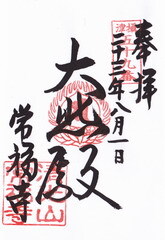 奉拝
二十三年八月一日
大悲殿
常福寺